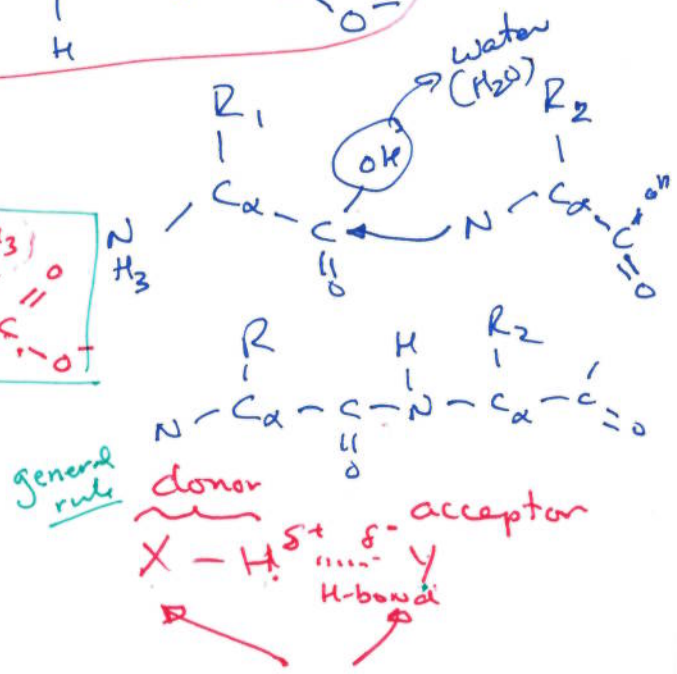 H
O-
water
(H2O)
R1
R2
OH
Cα
Cα
N
H3
C
N
C
OH
O
O
3)
O
C
O-
R
H
R2
N - Cα - C - N - Cα - C = O
O
general
rule
donor
acceptor
X - H δ+ ..... δ- Y
H-bond